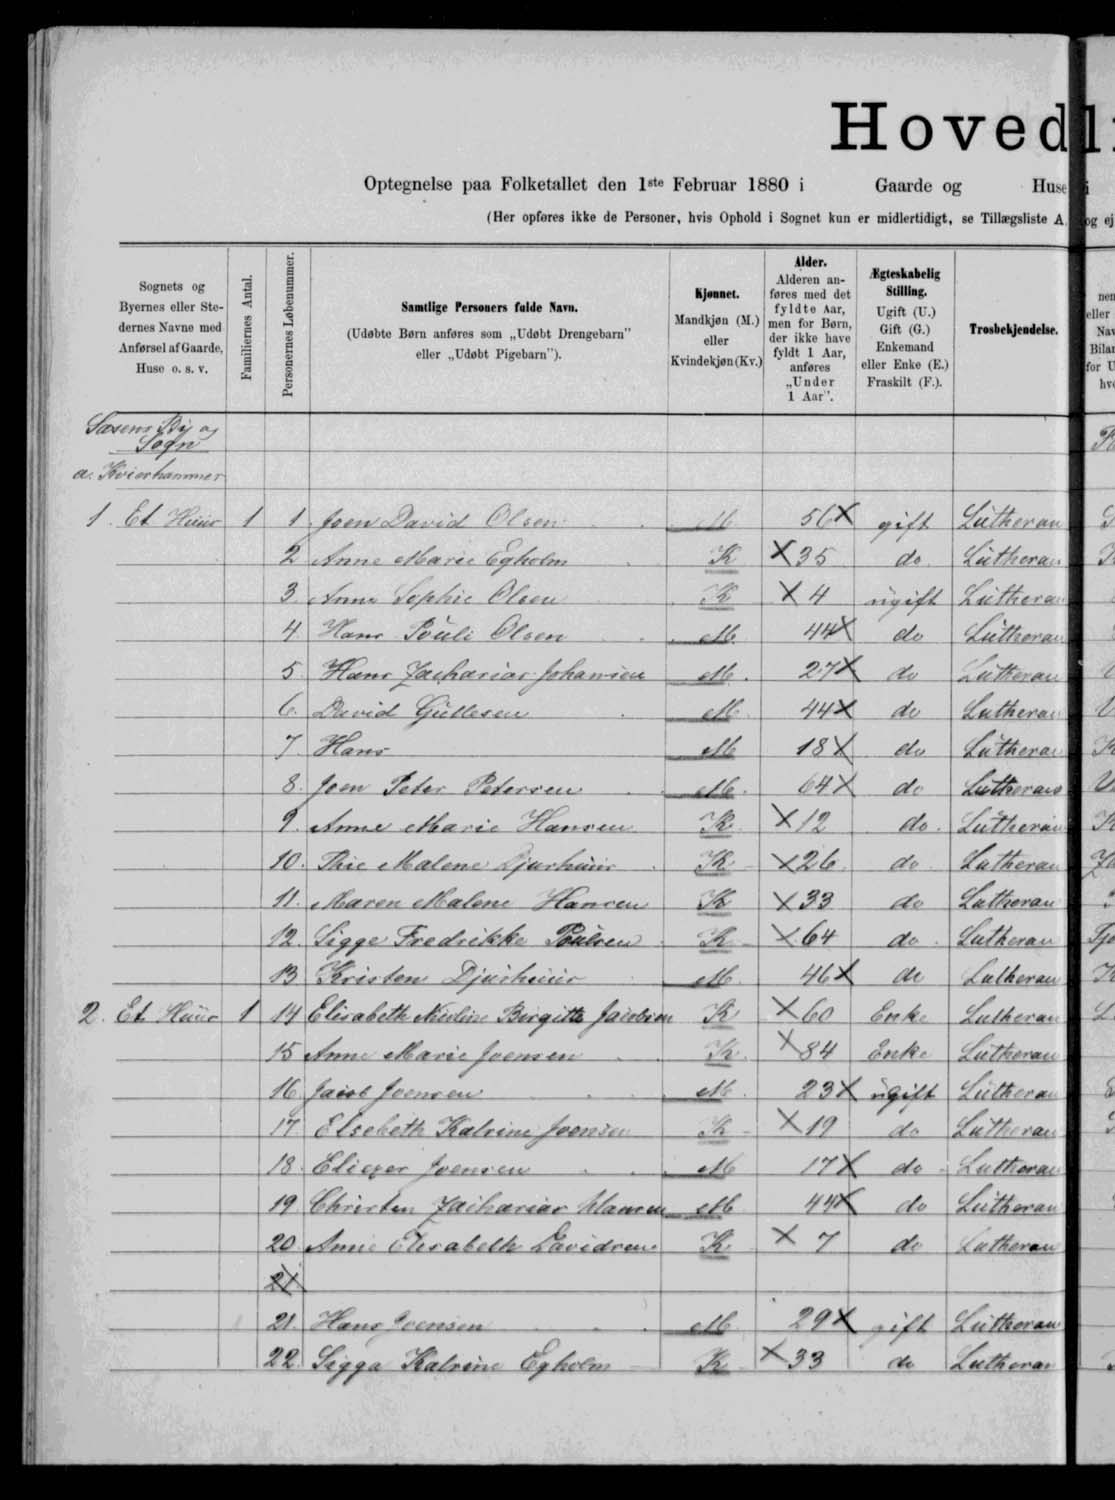 Hovedli
Optegnelse paa Folketallet den 1ste Februar 1880 i Gaarde og Huse i
(Her opføres ikke de Personer, hvis Ophold i Sognet kun er midlertidigt, se Tillægsliste A. og ej
Sognets og Byernes eller Stedernes Navne med Anførsel af Gaarde, Huse o. s. v.
Familiernes Antal.
Personernes Løbenummer.
Samtlige Personers fulde Navn.
(Udøbte Børn anføres som „Udøbt Drengebarn"
eller „Udøbt Pigebarn").
Kjønnet.
Mandkjøn (M.)
eller
Kvindekjøn (Kv.)
Alder.
Alderen an-
føres med det
fyldte Aar,
men for Børn,
der ikke have
fyldt 1 Aar,
anføres
„Under
1 Aar".
Ægteskabelig
Stilling.
Ugift (U.)
Gift (G.)
Enkemand
eller Enke (E.)
Fraskilt (F.).
Trosbekjendelse.
By og
Sogn
a.
1. Et Huus 1 1 Joen David Olsen M 56 X gift Lutheran
2 Anne Marie Egholm K X 35 do Lutheran
3 Anna Sophie Olsen K X 4 ugift Lutheran
4. Hans Pouli Olsen M. 44 X do Lutheran
5 Hans Zacharias Johansen M. 27 X do Lutheran
6. David Gullesen M 44 X do Lutheran
7 Hans M 18 X do Lutheran
8. Joen Peter Petersen M. 64 X do Lutheran
9. Anne Marie Hansen K X 12 do. Lutheran
10. Malene Djurhuus K X 26 do Lutheran
11. Maren Malene Hansen K X 33 do Lutheran
12. Sigge Fredrikke Poulsen K X 64 do Lutheran
13 Kristen Djurhuus M. 46 X do Lutheran
2. Et Huus 1 14 Elisabeth Birgitte Jacobsen K X 60 Enke Lutheran
15 Anne Marie Joensen K. X 84 Enke Lutheran
16 Jacob Joensen M. 23 X ugift Lutheran
17 Elsebeth Katrine Joensen K X 19 do Lutheran
18. Eliezer Joensen M 17 X do Lutheran
19. Christen Zacharias Hansen M. 44 X do Lutheran
20. Anne Elisabeth Davidsen K X 7 do Lutheran
21
21. Hans Joensen M 29 X gift Lutheran
22. Sigga Katrine Egholm K X 33 do Lutheran